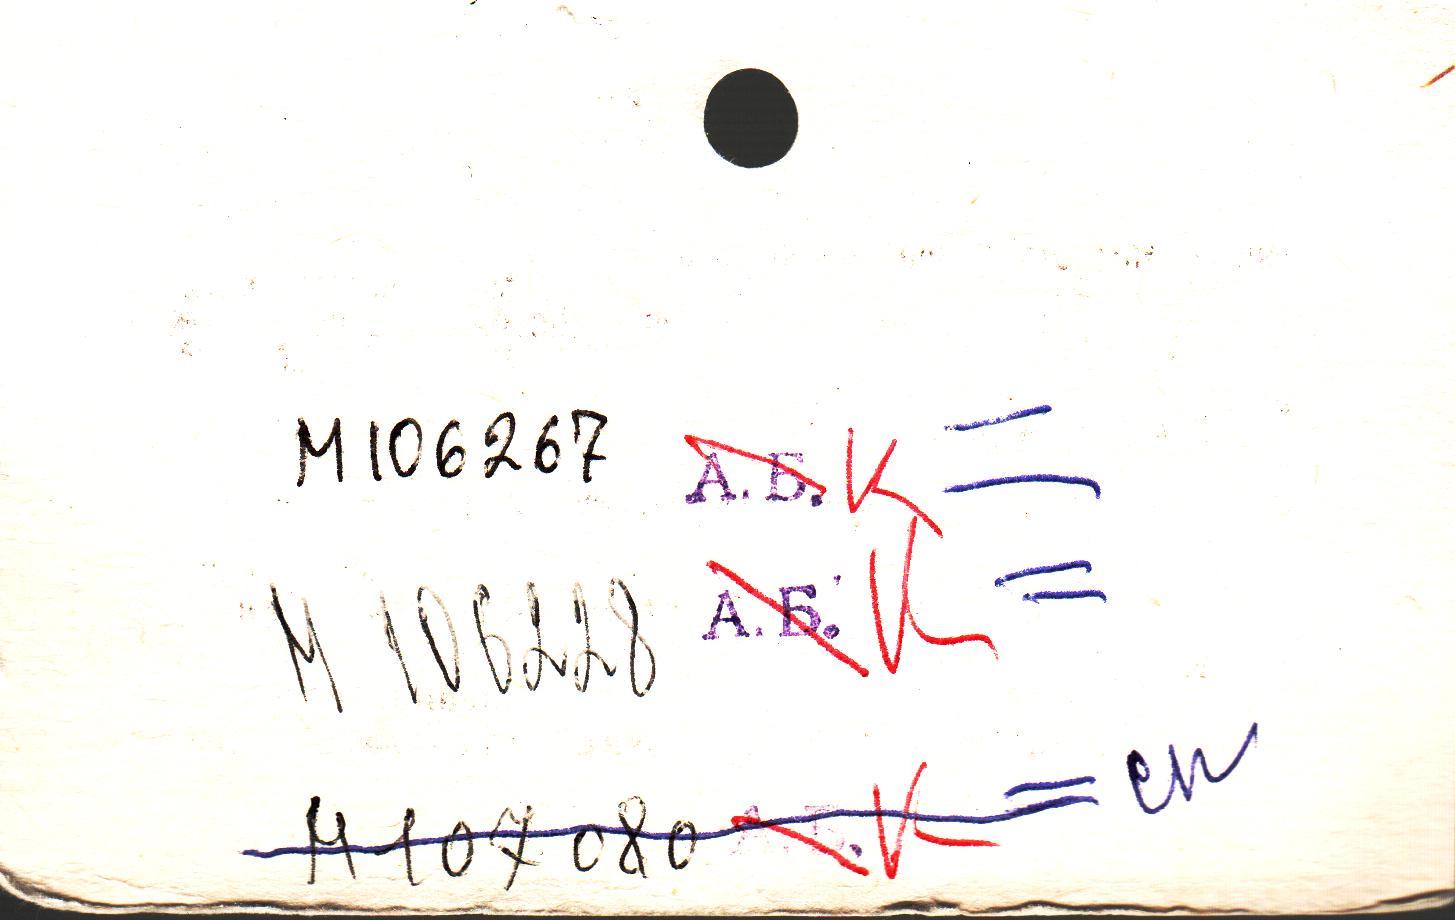 М106267 А.Б. К =
М 106228 А.Б. К =
М 107080 А.Б. К = сп